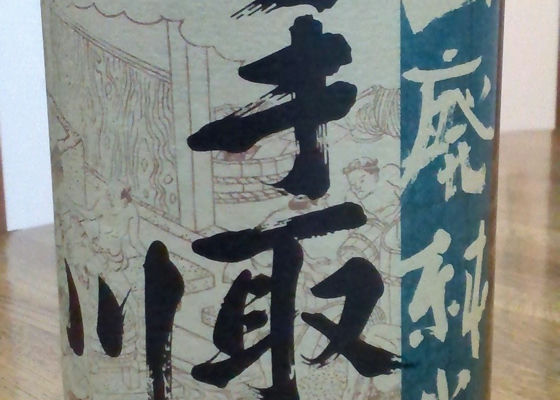 山廃純米
手取
川